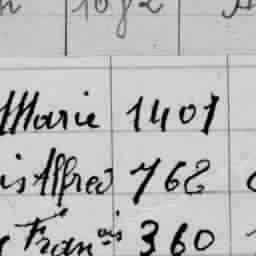 1082
Marie 1401
is Alfred 768
Fran^çois 360